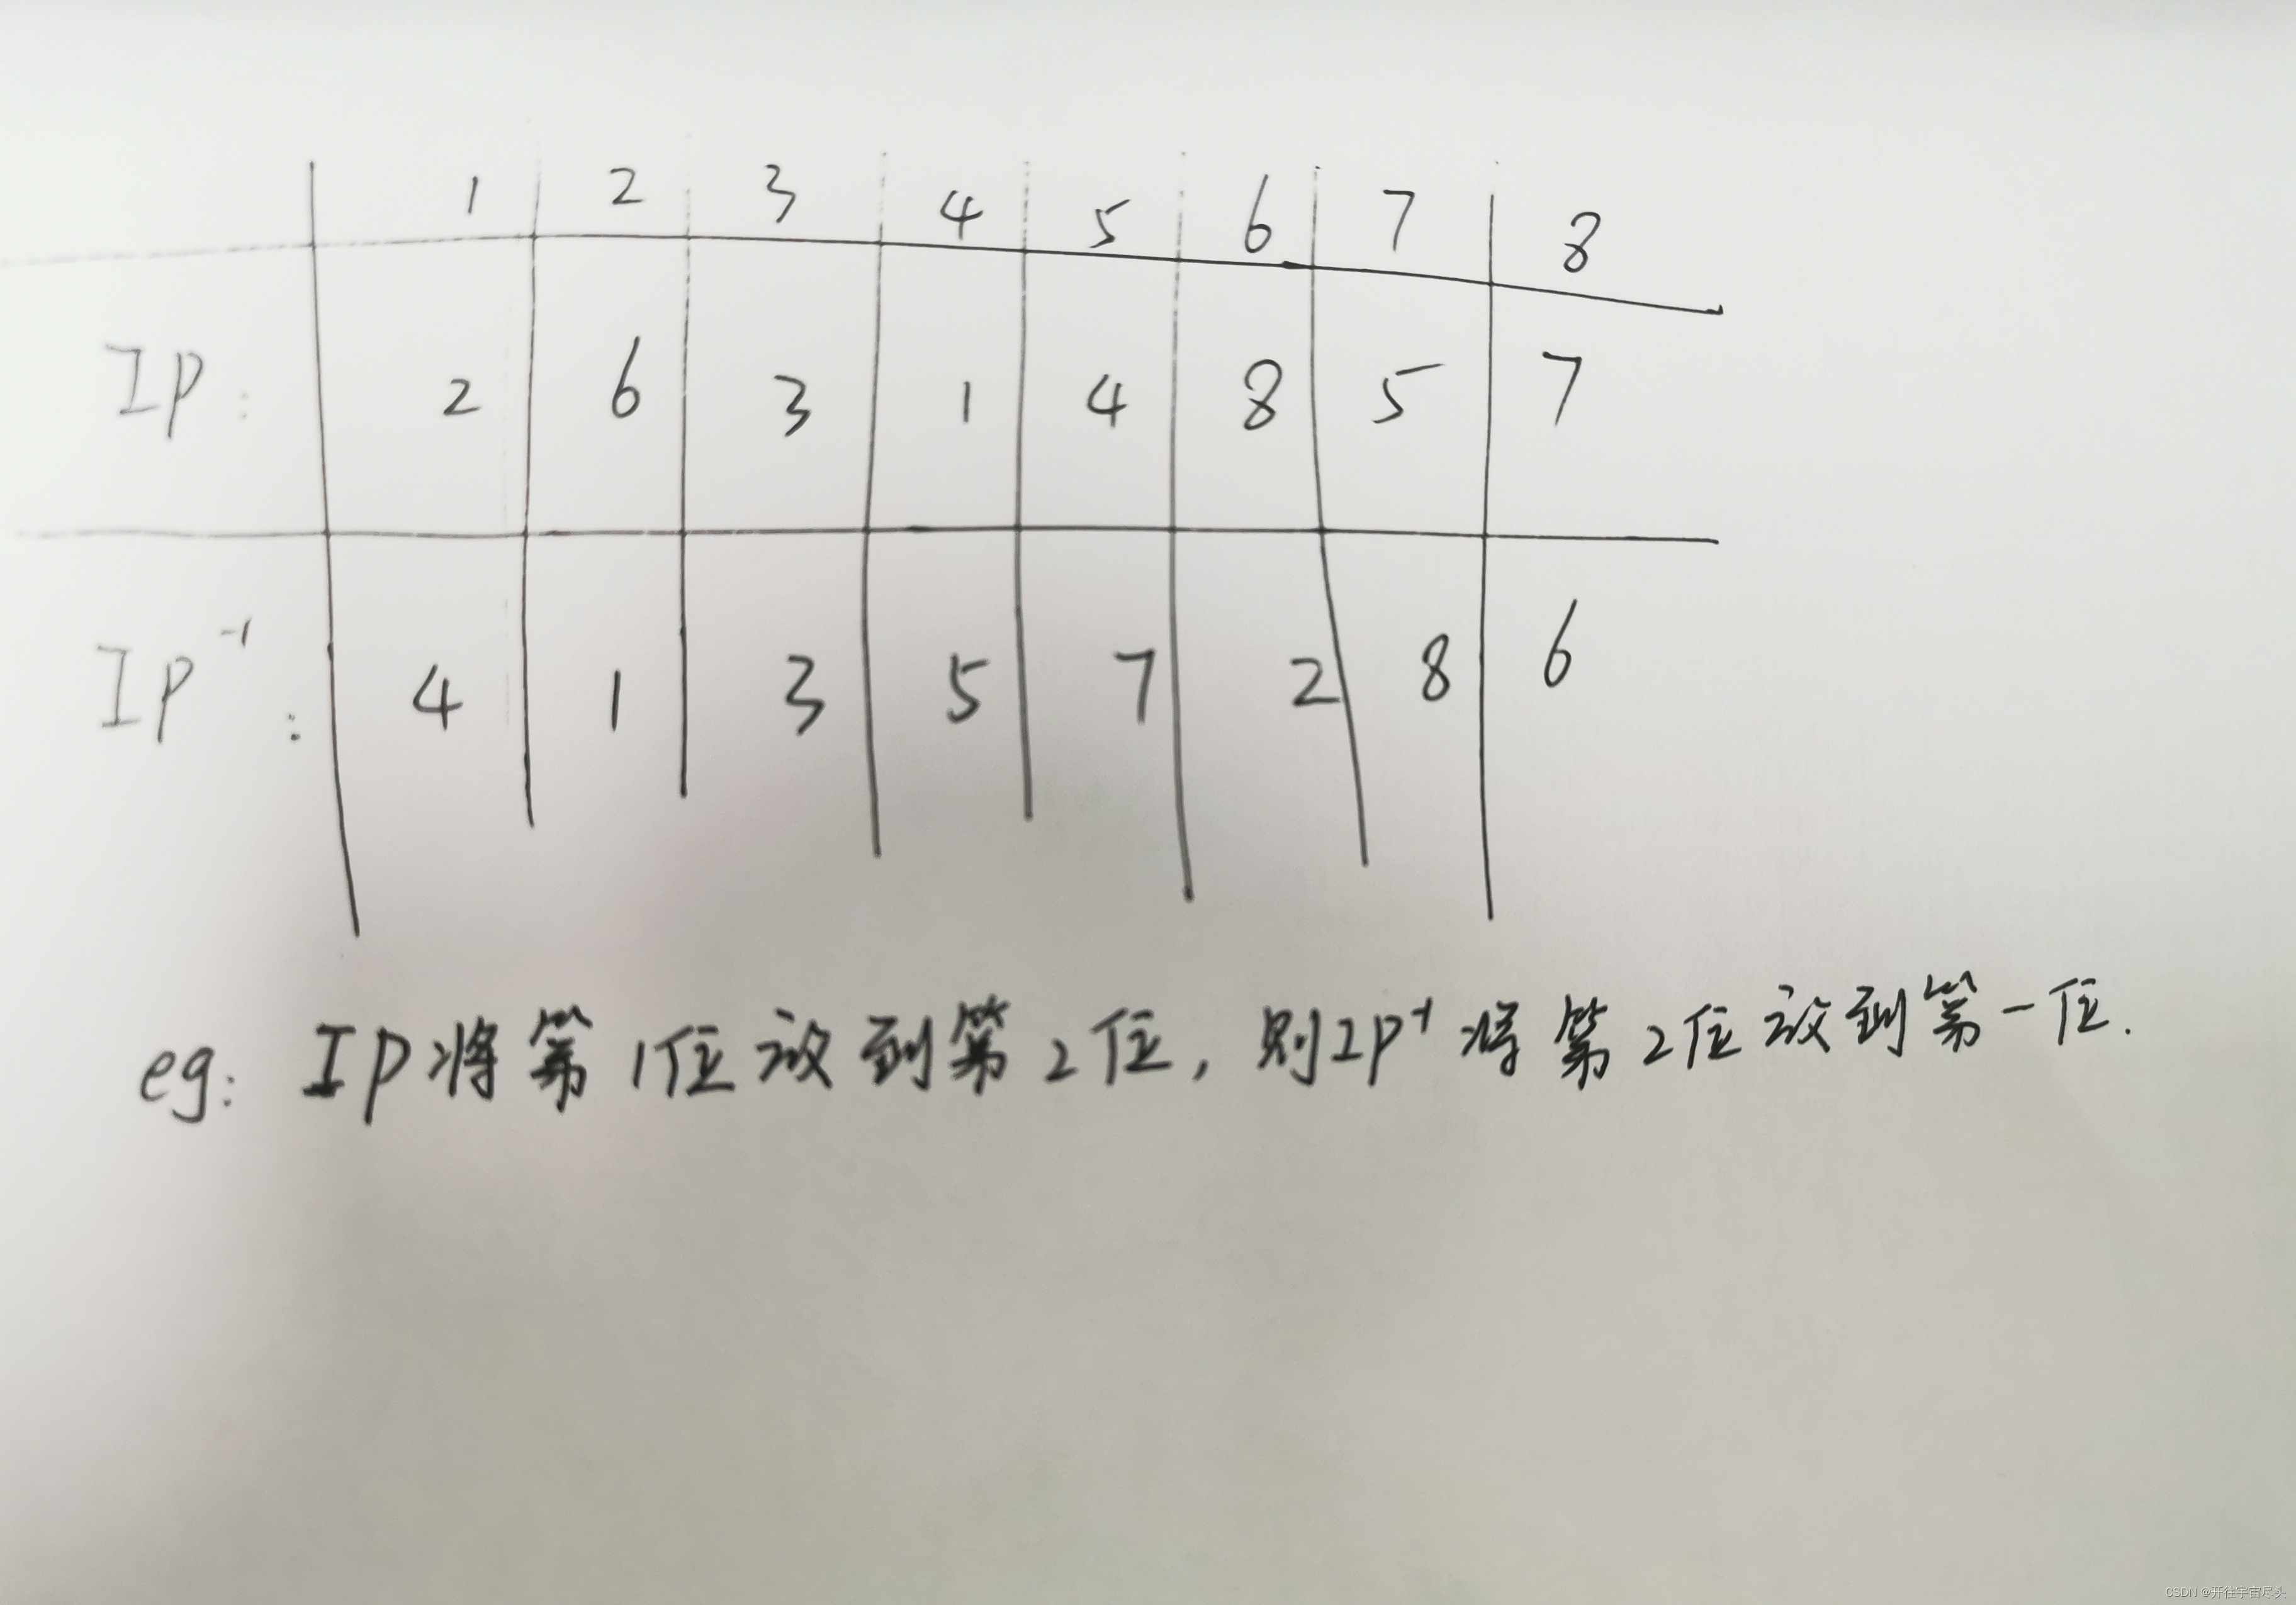 1 2 3 4 5 6 7 8
IP: 2 6 3 1 4 8 5 7
IP⁻¹: 4 1 3 5 7 2 8 6
eg: IP将第1位放到第2位,则IP⁻¹将第2位放到第一位.
CSDN @开往宇宙尽头